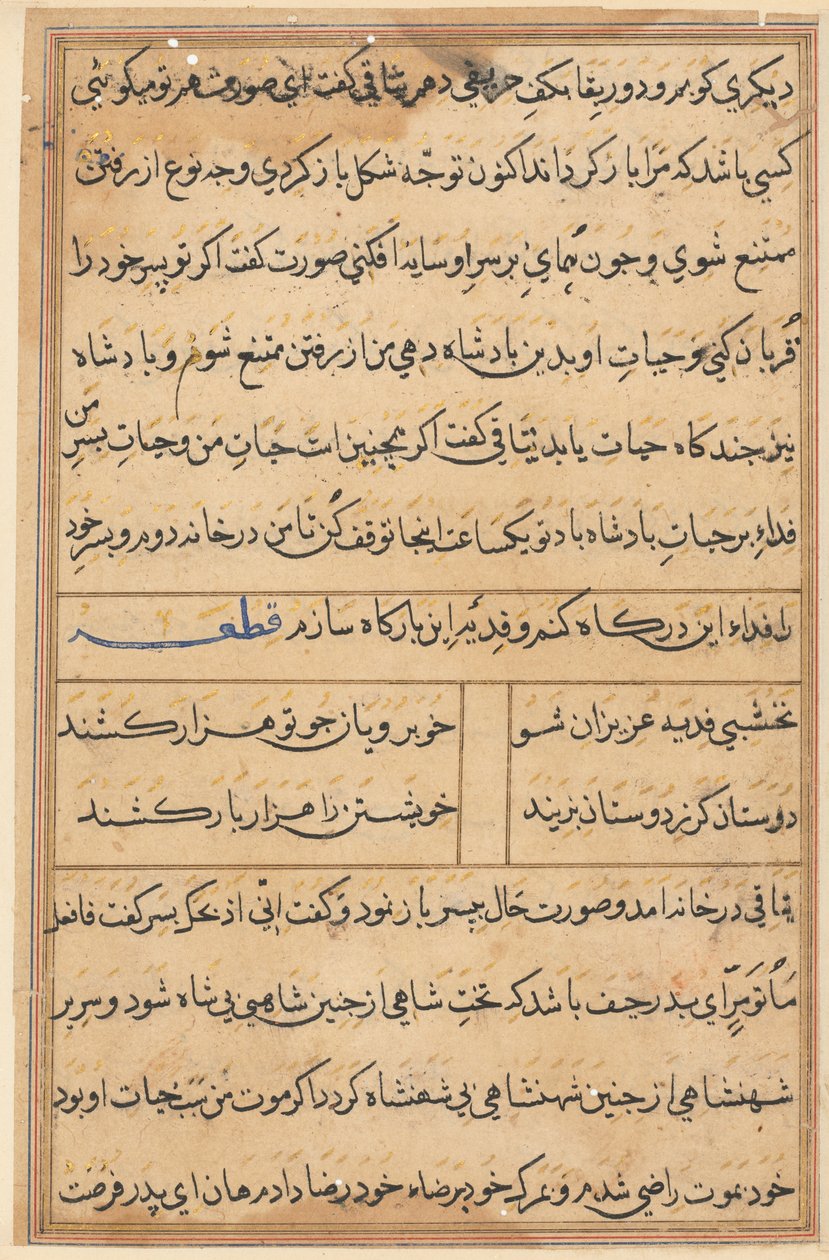 دیکری کو بمرودو ربقا بکف حریفی دهم یتاقی کفت ای صورت هم تو میکوئی
کسی باشد که مرا باز کرداند اکنون توجه شکل باز کردی وجه نوع از رفتن
ممتنع شوی وجون همای برسر او سایه افکنی صورت کفت اکر تو پسر خود را
قربان کنی و حیات او بدین بادشاه دهی من از رفتن ممتنع شوم و بادشاه
نیز جند کاه حیات یابد یتاقی کفت اکر همچنین است حیات من و حیات بسر من
فداء بر حیات بادشاه باد تو یکساعت اینجا توقف کن تا من در خانه روم و بسر خود
را فداء این درکاه کنم و فدئیه این بارکاه سازم قطعه
نخشبی فدیه عزیزان شو
خوبرویان جو تو هزار کشند
دوستان کز دوستان بزیند
خویشتن را هزار بار کشند
یتاقی در خانه امد و صورت حال بپسر باز نمود و کفت انی اذبحک بسر کفت فافعل
ما تومر ای بدر حیف باشد که تخت شاهی از جنین شاهی بی شاه شود و سریر
شهنشاهی از جنین شهنشاهی بی شهنشاه کردد اکر موت من سبب حیات او بود
خود بموت راضی شدم و بمرک خود برضاء خود رضا دادم هان ای پدر فرصت